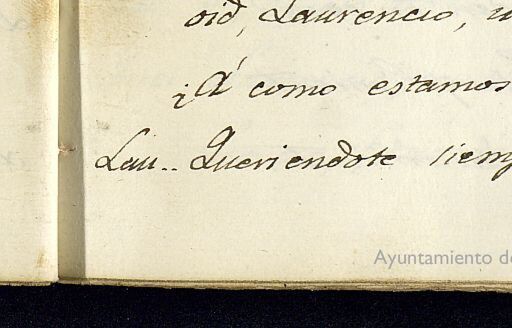 oid, Laurencio,
¿Á como estamos
Lau.. Queriendote siem
Ayuntamiento de